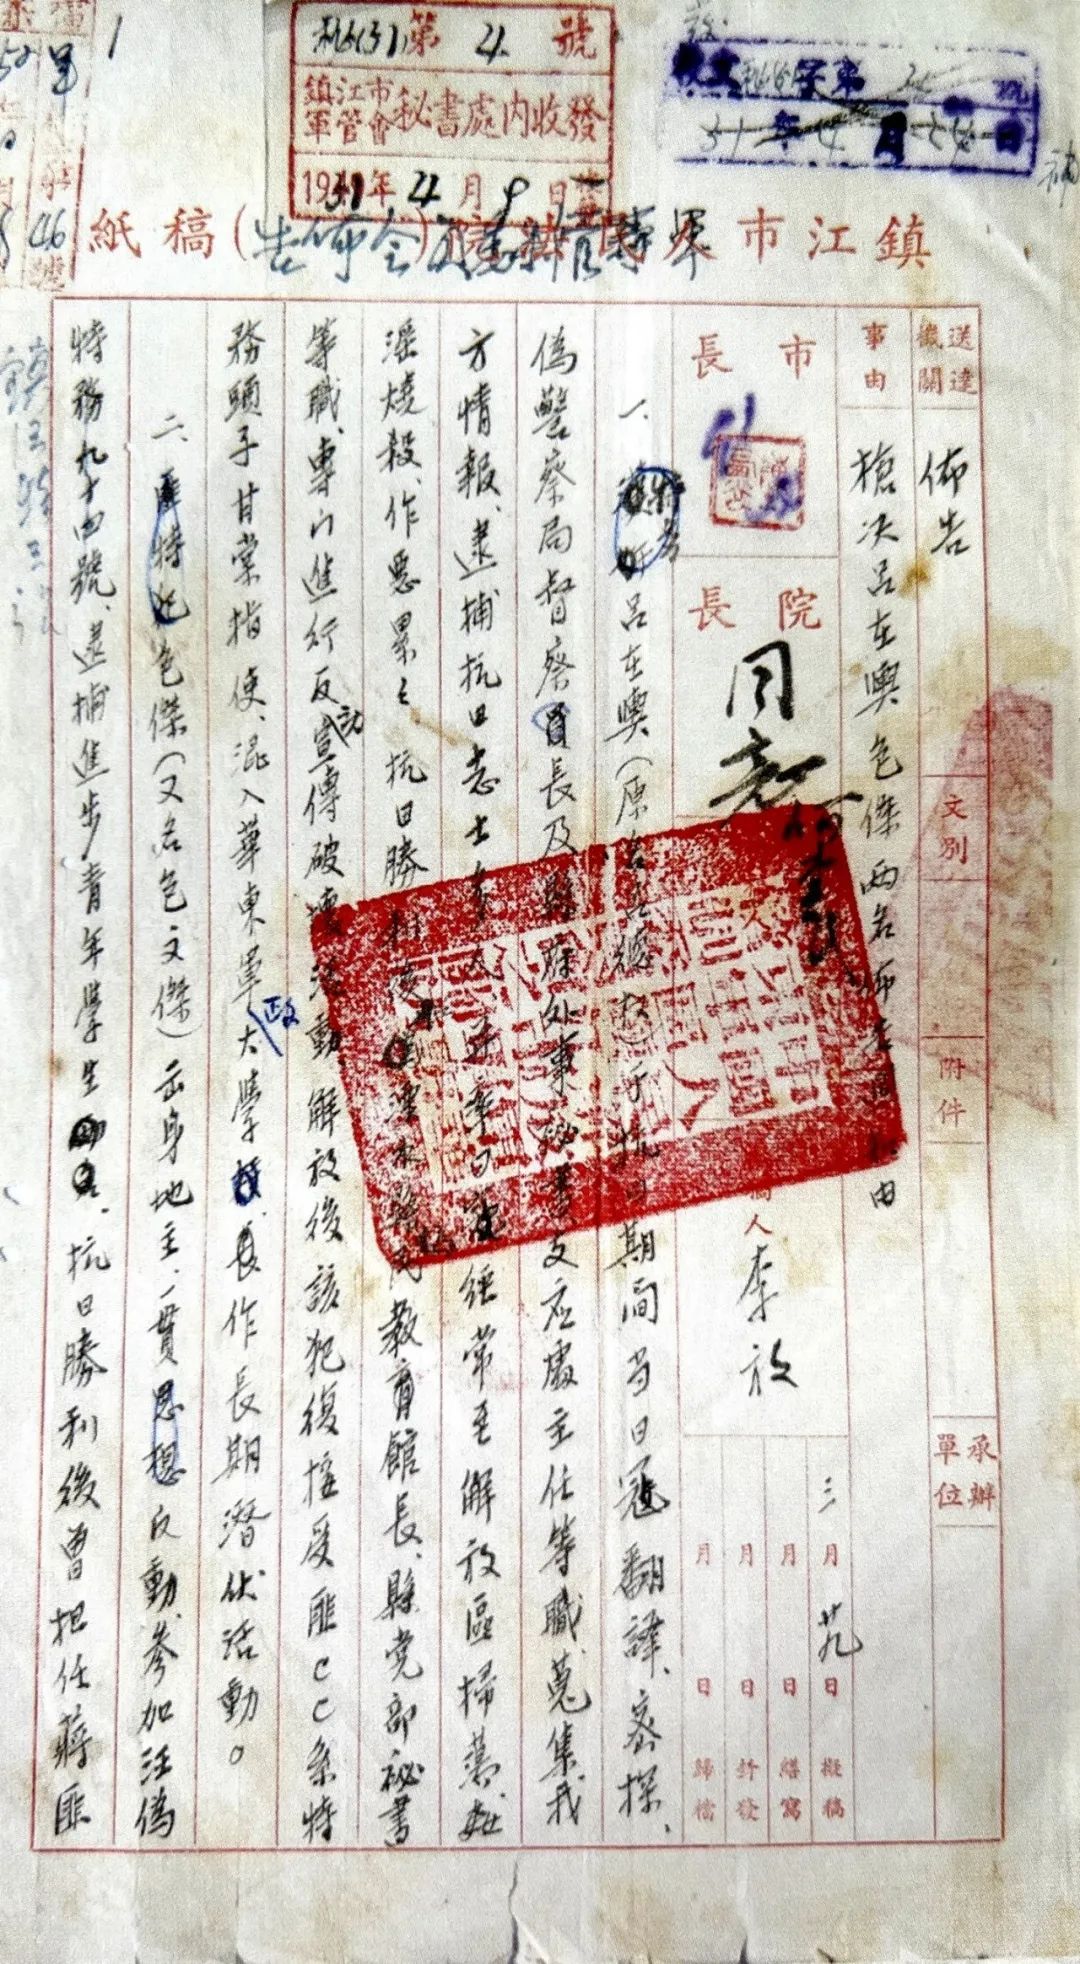 秘(51)第4號
鎮江市軍管會秘書處内收發
1951年4月9日
收文 字第 號
51年4月 日
補
鎮江市人民法院(告佈令)稿紙
送達機關 佈告
文別
附件
承辦單位
事由 槍決呂在輿包傑兩名佈告 由
市長
院長 同意
人 李放
三月廿九日擬稿
月 日繕寫
月 日封發
月 日歸檔
一、 呂在輿(原名 )于抗日期間当日寇翻譯、密探、
偽警察局督察長及縣府外事秘書支应處主任等職、蒐集我
方情報、逮捕抗日志士多人、并率日寇經常至解放區掃蕩、姦
淫燒殺、作惡累々抗日勝利後 教育館長、縣党部秘書
等職、專门進行反動宣傳破壞活動解放後該犯復接受匪CC系特
務頭子甘棠指使、混入華東軍政大學 長作長期潛伏活動。
二、匪特 包傑(又名包文傑)出身地主、一貫思想反動、参加汪偽
特務九十四號、逮捕進步青年學生 、抗日勝利後曾担任蔣匪